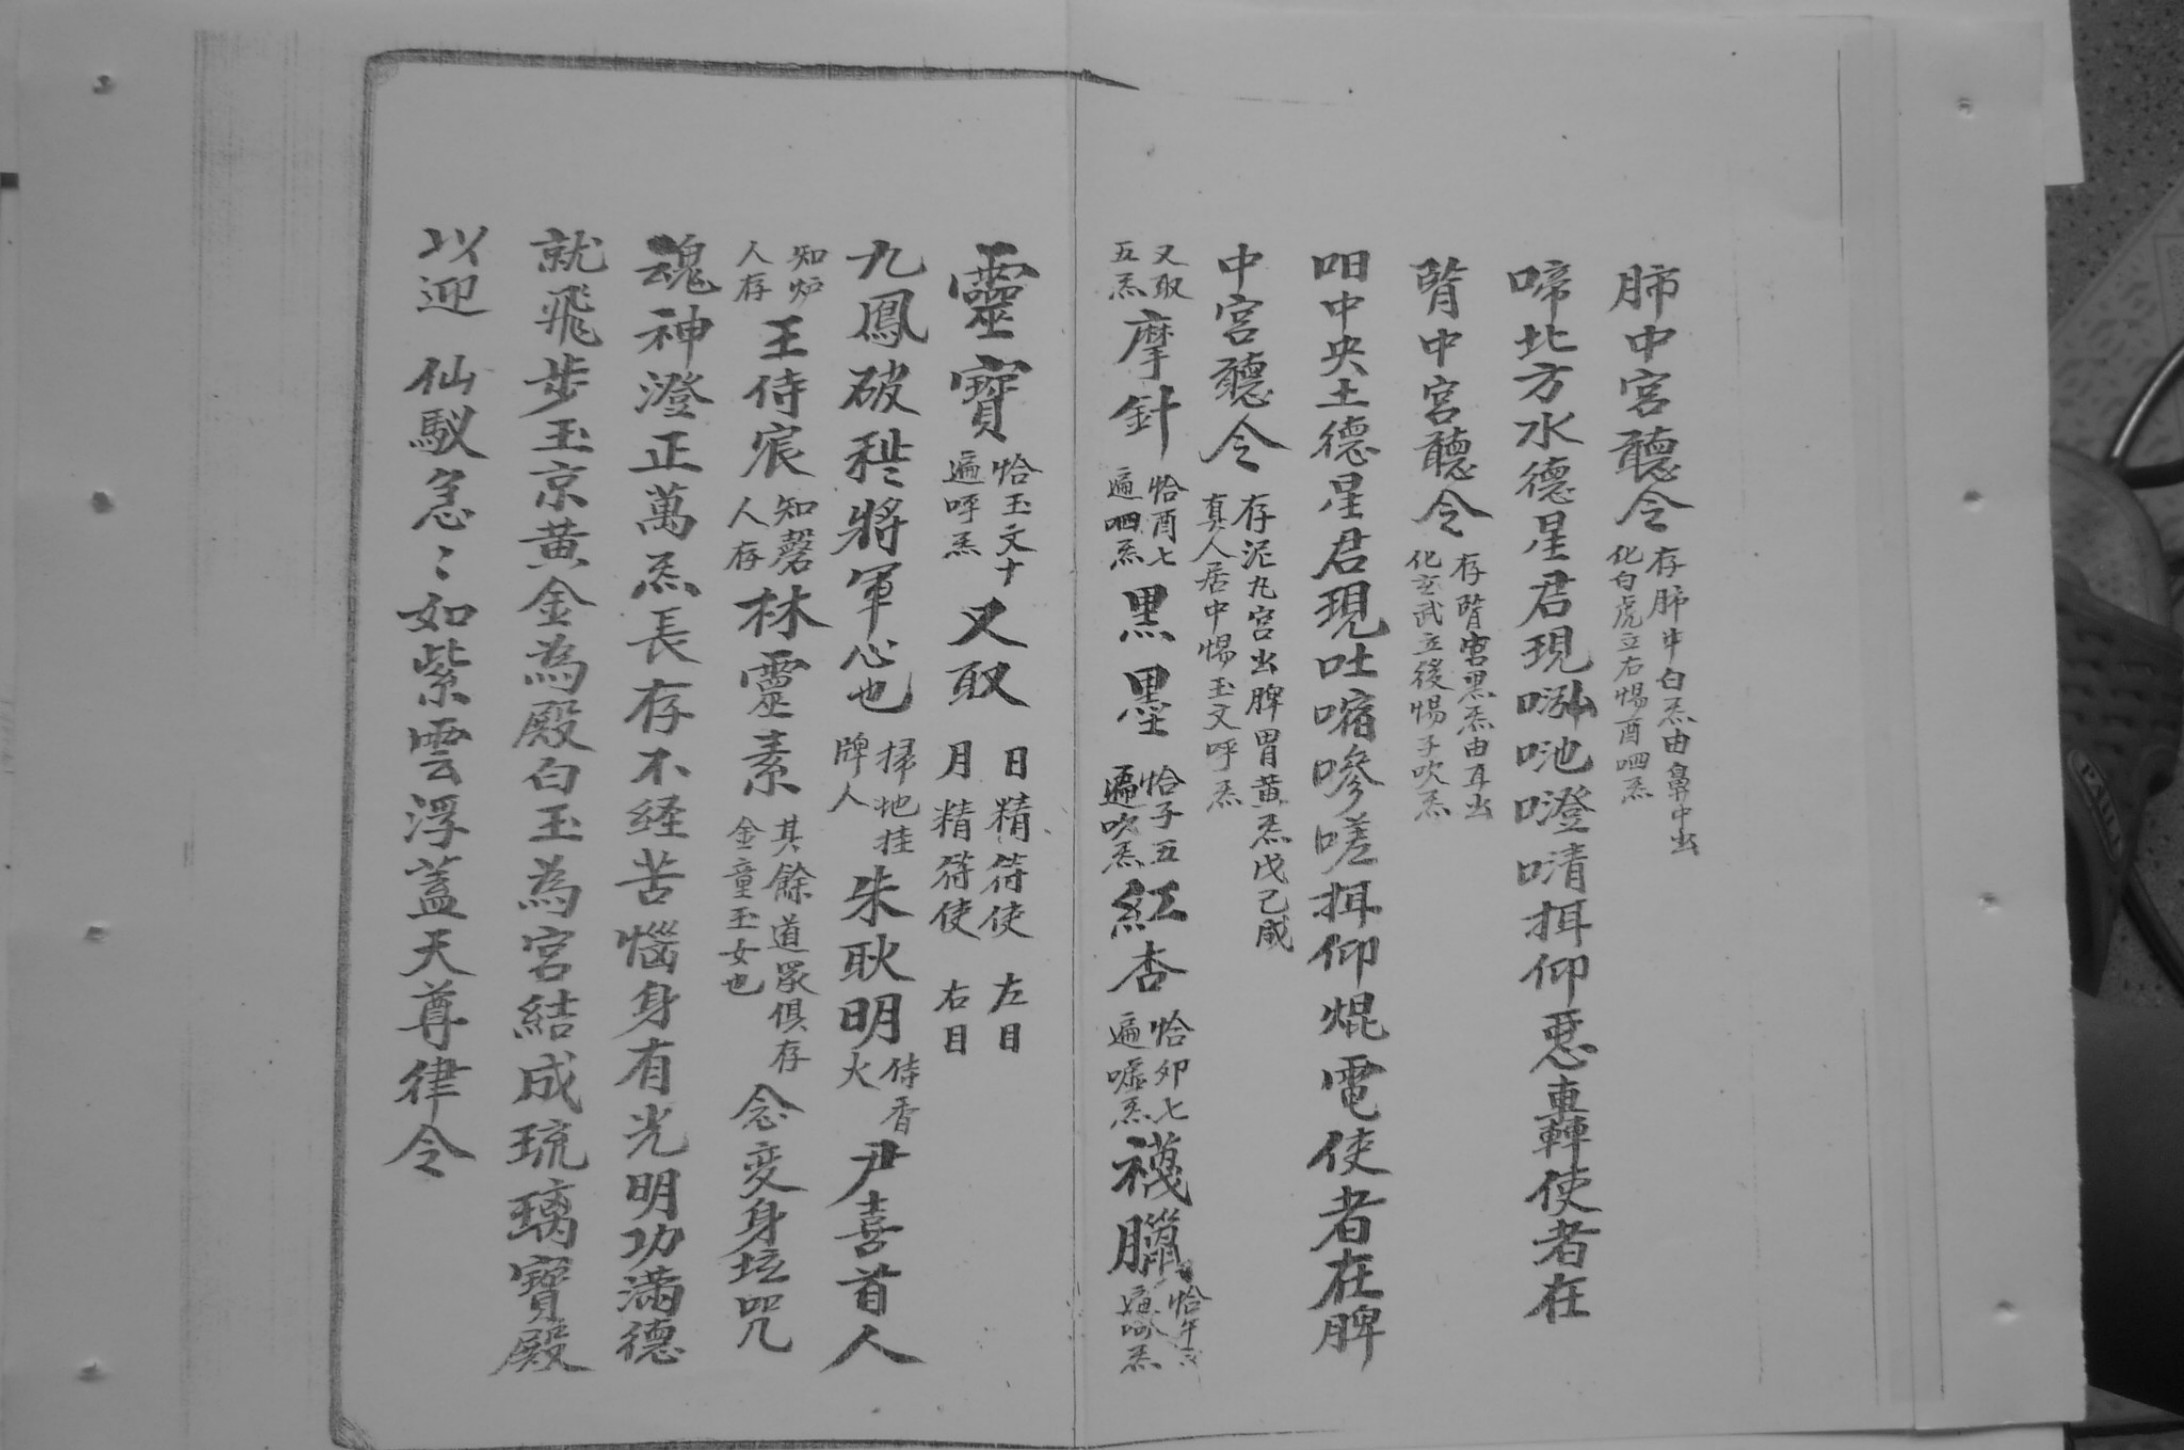 肺中宮聽令 存肺中白炁由鼻中出 化白虎立右惕酉呬炁
啼北方水德星君現㗶吔噔㖑揖仰恶轟使者在
腎中宮聽令 存腎宮黑炁由耳出 化玄武立後惕子吹炁
呬中央土德星君現吐嚬嘇嗟揖仰焜電使者在脾
中宮聽令 存泥丸宮出脾胃黄炁戊己成 真人居中惕玉文呼炁
又取五炁 摩針 恰酉七遍呬炁 黒墨 恰子五遍吹炁 紅杏 恰卯七遍嘘炁 襪臘 恰午 遍呵炁
靈寶 恰玉文十遍呼炁 又取 日精符使 左目 月精符使 右目
九鳳破穢將軍心也 掃地挂牌人 朱耿明 侍香火 尹喜首人
知炉人存 王侍宸 知磬人存 林靈素 其餘道眾俱存金童玉女也 念变身坛咒
魂神澄正萬炁長存不经苦惱身有光明功滿德
就飛步玉京黄金為殿白玉為宮結成琉璃寶殿
以迎 仙馭急〻如紫雲浮蓋天尊律令